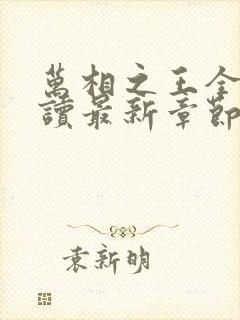 萬相之王全
讀最新章節
袁新明